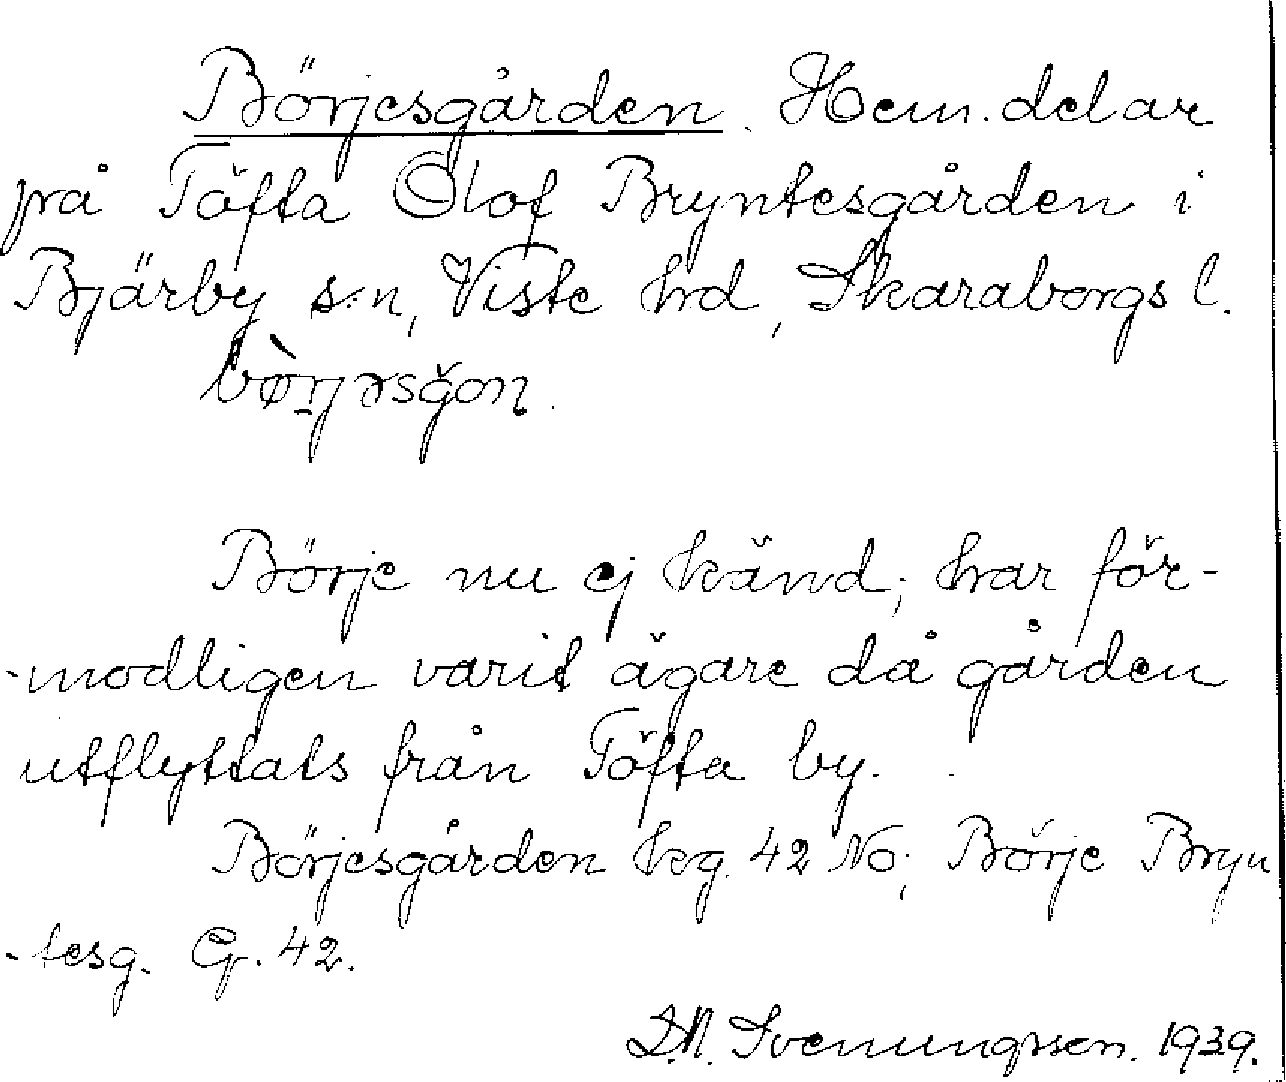 Börjesgården. Hem. delar
på Töfta Olof Bryntesgården i
Bjärby s:n, Viste hrd, Skaraborgs l.
Börje nu ej känd; har för-
-modligen varit ägare då gården
utflyttats från Töfta by.
Börjesgården kg. 42 No; Börje Bryn
-tesg. G. 42.
D.N. Svenungsson. 1939.